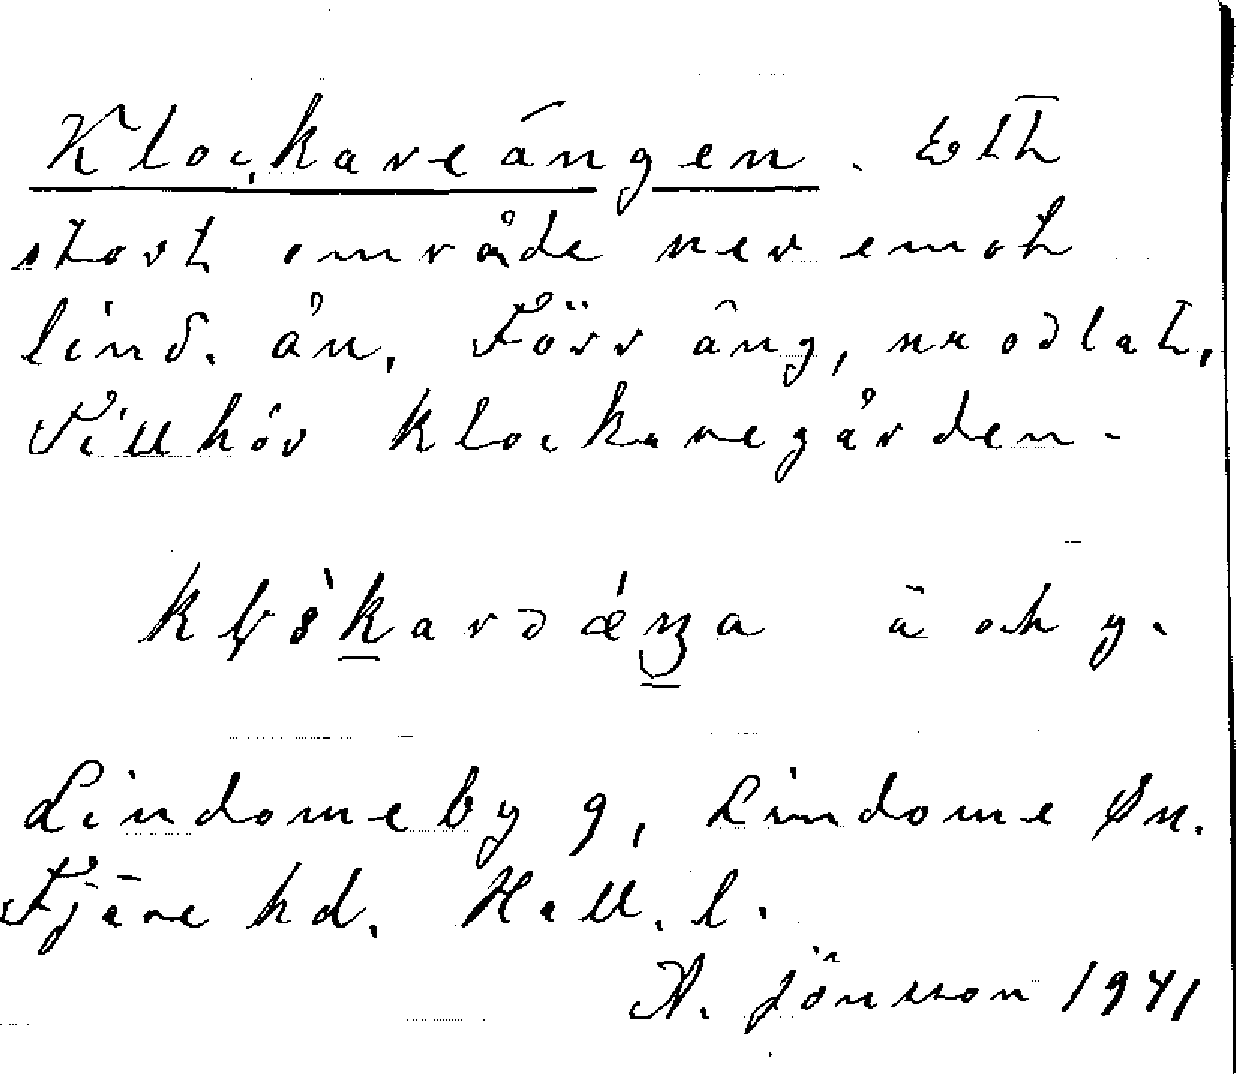 Klockareängen. Ett
stort område ner emot
lind. ån. Förr äng, nu odlat.
Tillhör klockaregården.
ä och y.
Lindome by 9, Lindome sn.
Fjäre hd. Hall. l.
A. Jönsson 1941